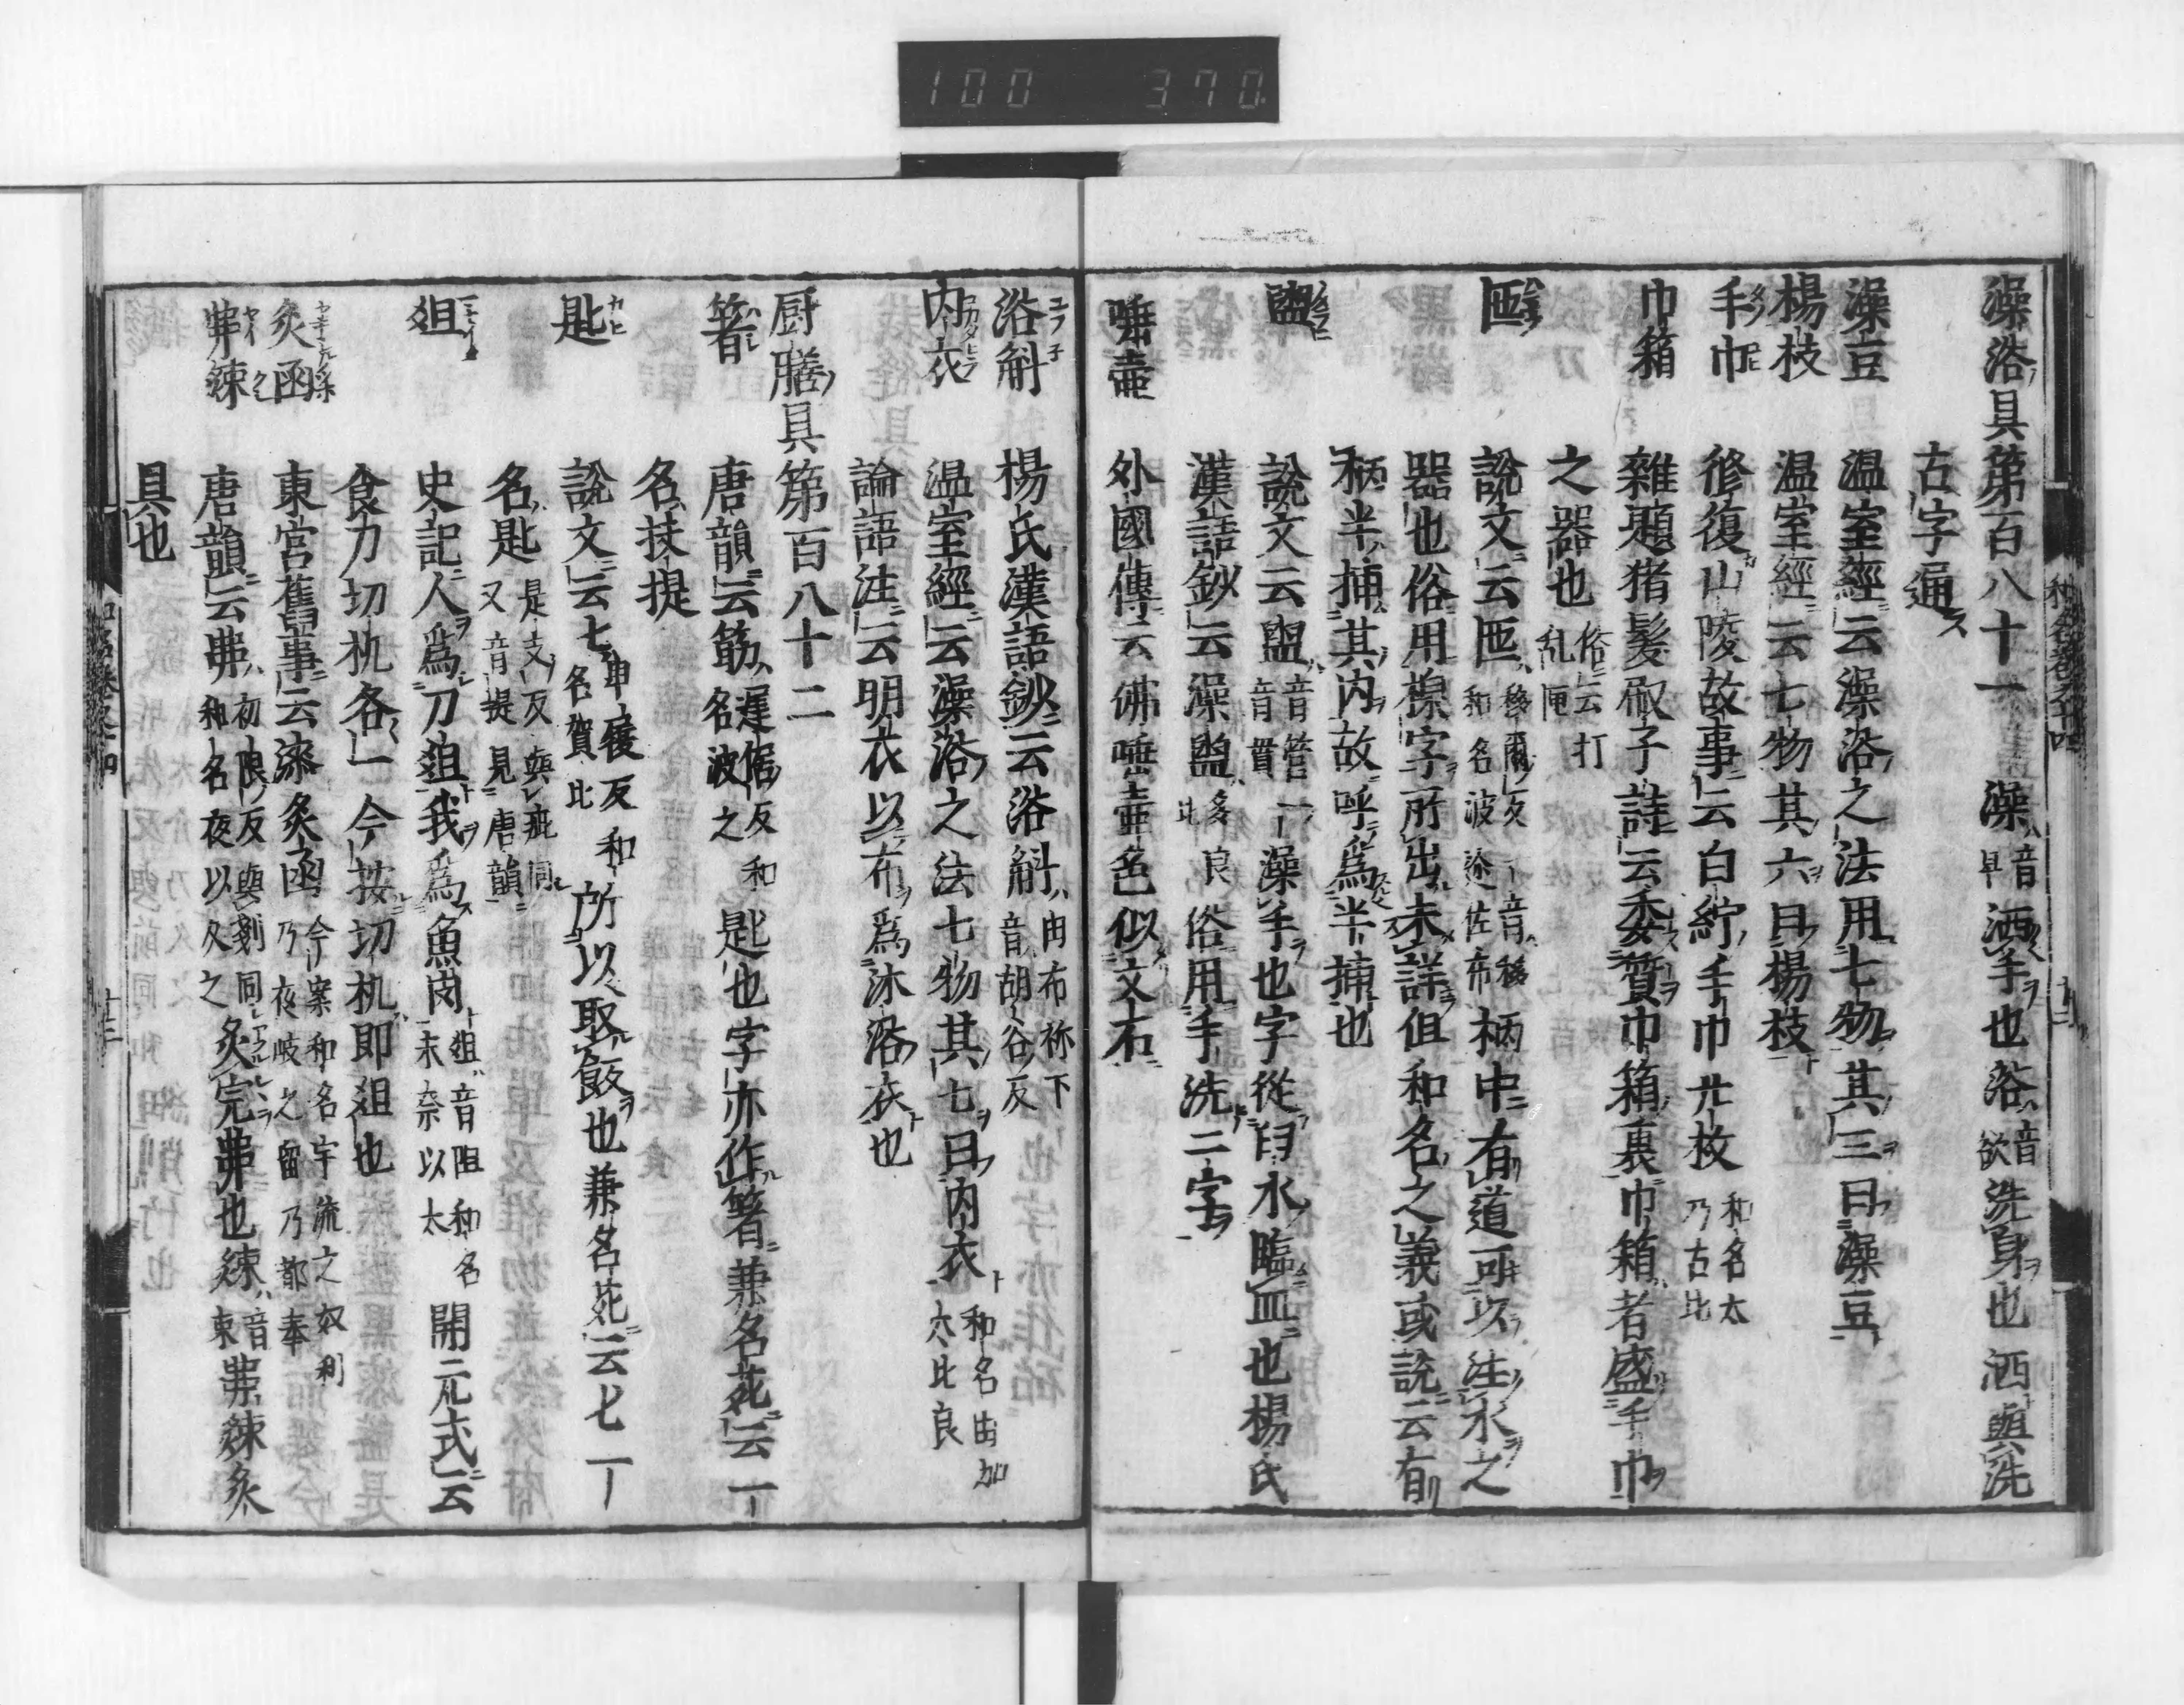 100 370
澡浴具第百八十一 澡音早洒手也浴音欲洗身也洒與洗
古字通
澡豆 温室經云澡浴之法用七物其三曰澡豆
楊枝 温室經云七物其六曰楊枝
手巾 修復山陵故事云白紵手巾廾枚和名太乃古比
巾箱 雜題猪髮𠕀子詩云委質巾箱裏巾箱者盛手巾
之器也俗云打乱匣
匜 說文云匜移爾反一音移和名波迩佐布柄中有道可以注水之
器也俗用楾字所出未詳但和名之義或説云有
柄半挿其内故呼爲半挿也
盥 說文云盥音管一音貫澡手也字從臼水臨皿也楊氏
漢語鈔云澡盥多良比俗用手洗二字
唾壷 外國傳云佛唾壷色似文石
浴斛 楊氏漢語鈔云浴斛由布祢下音胡谷反
内衣 温室經云澡浴之法七物其七曰内衣和名由加太比良
論語注云明衣以布爲沐浴衣也
厨膳具第百八十二
箸 唐韻云筯遅倨反和名波之匙也字亦作箸兼名苑云一
名扶提
匙 説文云七卑履反和名賀比所以取飯也兼名苑云七一
名匙是支反與𧣨同又音提見唐韻
俎 史記云人爲刀俎我爲魚肉俎音阻和名末奈以太開元式云
食刀切机各一今按切机即俎也
炙函 東宮舊事云漆炙函今案和名宇流之奴利乃夜岐之留乃都奉
弗䇲 唐韻云弗初限反與剗同和名夜以久之炙完弗也䇲音束弗䇲炙
具也